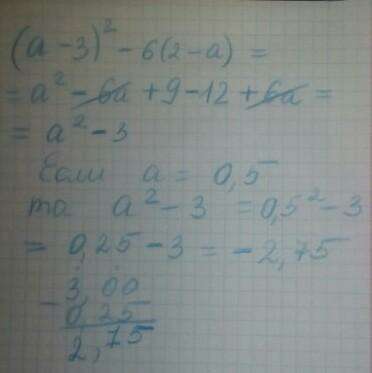 (a - 3)² - 6(2 - a) =
= a² - 6a + 9 - 12 + 6a =
= a² - 3
Если a = 0,5
то a² - 3 = 0,5² - 3
= 0,25 - 3 = - 2,75
3,00
- 0,25
2,75